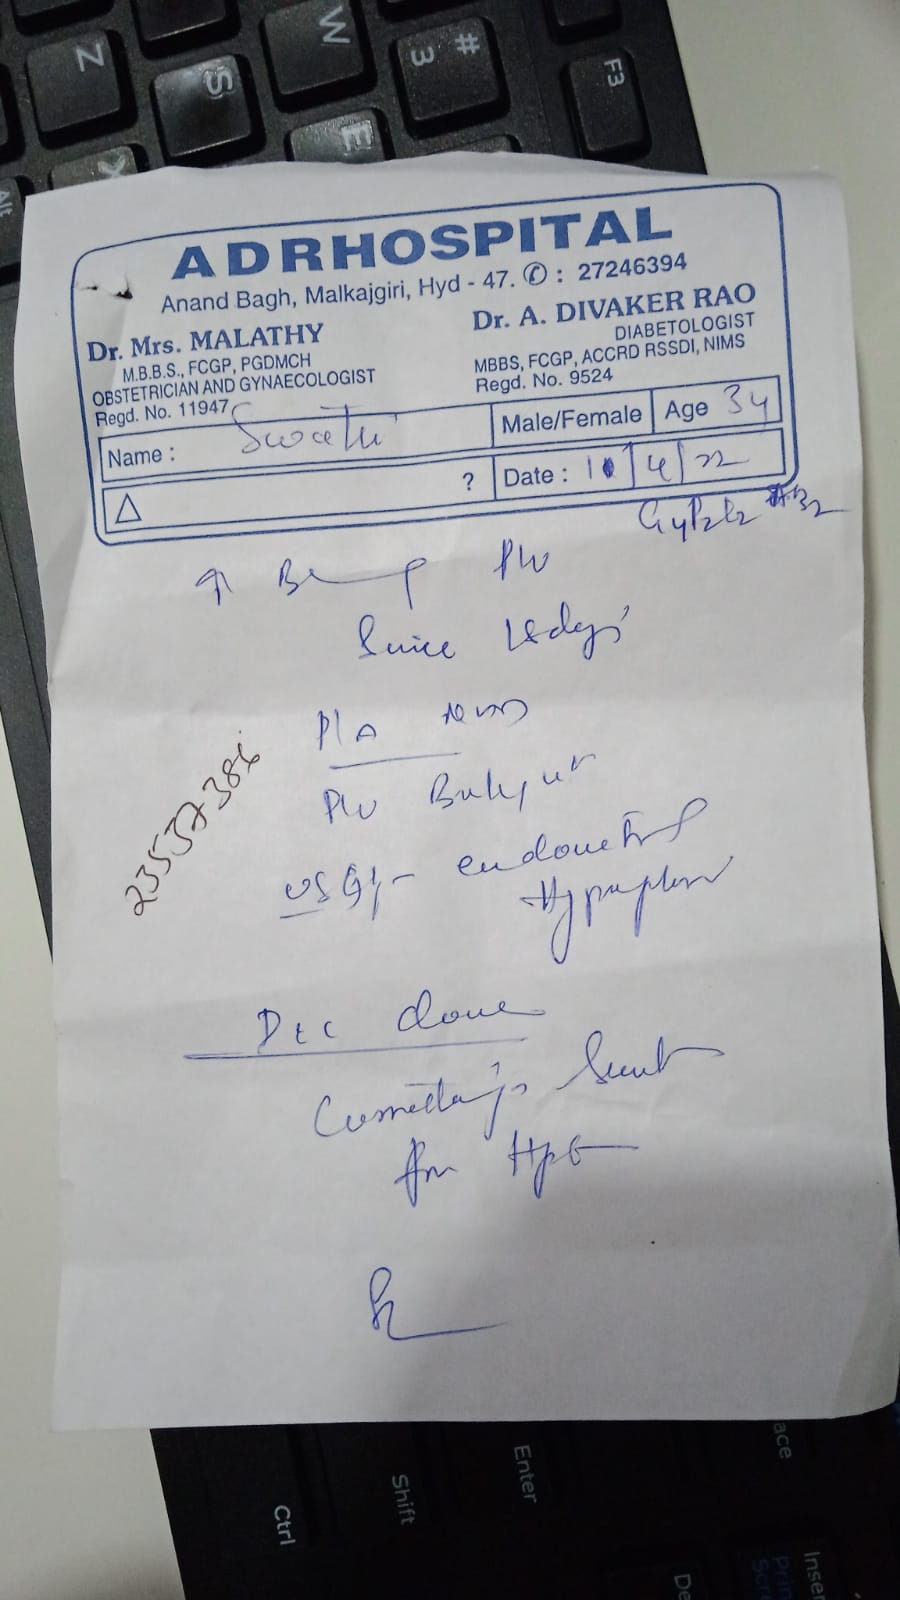 ADRHOSPITAL
Anand Bagh, Malkajgiri, Hyd - 47. ✆ : 27246394
Dr. Mrs. MALATHY
M.B.B.S., FCGP, PGDMCH
OBSTETRICIAN AND GYNAECOLOGIST
Regd. No. 11947
Dr. A. DIVAKER RAO
DIABETOLOGIST
MBBS, FCGP, ACCRD RSSDI, NIMS
Regd. No. 9524
Name : Swathi
Male/Female
Age 34
△ ?
Date : 10/4/22
P/V
Since days
P/A
P/V Bulky ut
USG:- endometrial
Hyperplasia
23537386
D&C done
Curettings Sent
for HPE
W
# 3
F3
Z
S
E
X
Alt
Ctrl
Shift
Enter